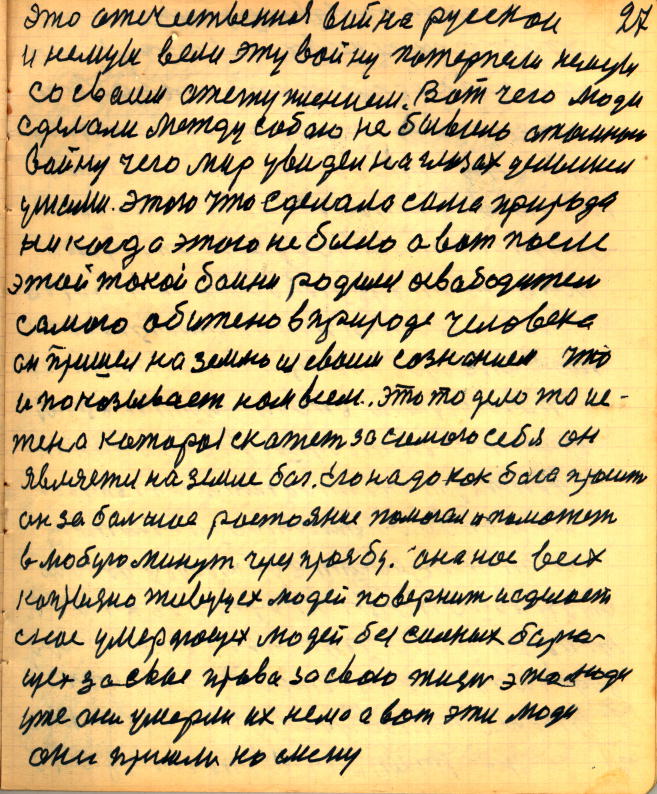 Это отечественная война русской 27
и немци вели эту войну потерпели немци
со своим отступлением. Вот чего люди
сделали между собою не бывало
войну чего мир увидел на глазах
ушами. Этого что сделала сама природа
никогда этого не было а вот после
этой такой бойни родился освабодител
самого обижено в природе человека
он пришел на землю со своим сознанием что
и показывает нам всем. Это то дело та ис-
тена которая скажет за самого себя он
является на земле бог. Его надо как бога просит
он за большое ростояние помогал и поможет
в любую минут через прозьбу. она нас всех
напрязно живущех людей повернит и сделает
снас умерающех людей бессилных боря-
щех за свое права за свою жизн эта люди
уже они умерли их нема а вот эти люди
они пришли на смену